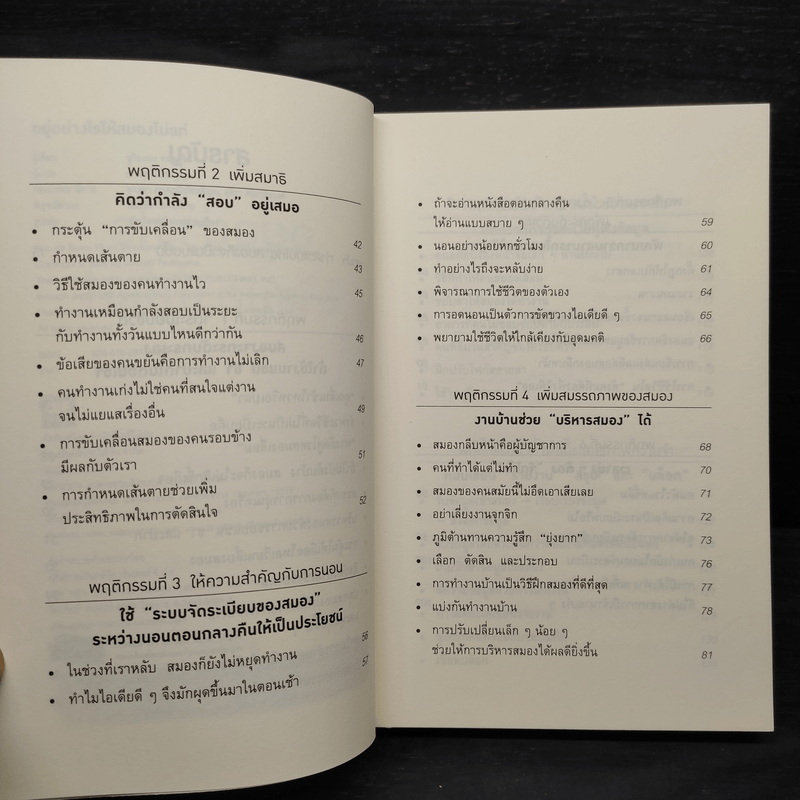 พฤติกรรมที่ 2 เพิ่มสมาธิ
คิดว่ากำลัง “สอบ” อยู่เสมอ
• กระตุ้น “การขับเคลื่อน” ของสมอง 42
• กำหนดเส้นตาย 43
• วิธีใช้สมองของคนทำงานไว 45
• ทำงานเหมือนกำลังสอบเป็นระยะ
กับทำงานทั้งวันแบบไหนดีกว่ากัน 46
• ข้อเสียของคนขยันคือการทำงานไม่เลิก 47
• คนทำงานเก่งไม่ใช่คนที่สนใจแต่งาน
จนไม่แยแสเรื่องอื่น 49
• การขับเคลื่อนสมองของคนรอบข้าง
มีผลกับตัวเรา 51
• การกำหนดเส้นตายช่วยเพิ่ม
ประสิทธิภาพในการตัดสินใจ 52
พฤติกรรมที่ 3 ให้ความสำคัญกับการนอน
ใช้ “ระบบจัดระเบียบของสมอง”
ระหว่างนอนตอนกลางคืนให้เป็นประโยชน์
• ในช่วงที่เราหลับ สมองก็ยังไม่หยุดทำงาน 56
• ทำไมไอเดียดี ๆ จึงมักผุดขึ้นมาในตอนเช้า 57
• ถ้าจะอ่านหนังสือตอนกลางคืน
ให้อ่านแบบสบาย ๆ 59
• นอนอย่างน้อยหกชั่วโมง 60
• ทำอย่างไรถึงจะหลับง่าย 61
• พิจารณาการใช้ชีวิตของตัวเอง 64
• การอดนอนเป็นตัวการขัดขวางไอเดียดี ๆ 65
• พยายามใช้ชีวิตให้ใกล้เคียงกับอุดมคติ 66
พฤติกรรมที่ 4 เพิ่มสมรรถภาพของสมอง
งานบ้านช่วย “บริหารสมอง” ได้
• สมองกลีบหน้าคือผู้บัญชาการ 68
• คนที่ทำได้แต่ไม่ทำ 70
• สมองของคนสมัยนี้ไม่อึดเอาเสียเลย 71
• อย่าเลี่ยงงานจุกจิก 72
• ภูมิต้านทานความรู้สึก “ยุ่งยาก” 73
• เลือก ตัดสิน และประกอบ 76
• การทำงานบ้านเป็นวิธีฝึกสมองที่ดีที่สุด 77
• แบ่งกันทำงานบ้าน 78
• การปรับเปลี่ยนเล็ก ๆ น้อย ๆ
ช่วยให้การบริหารสมองได้ผลดียิ่งขึ้น 81